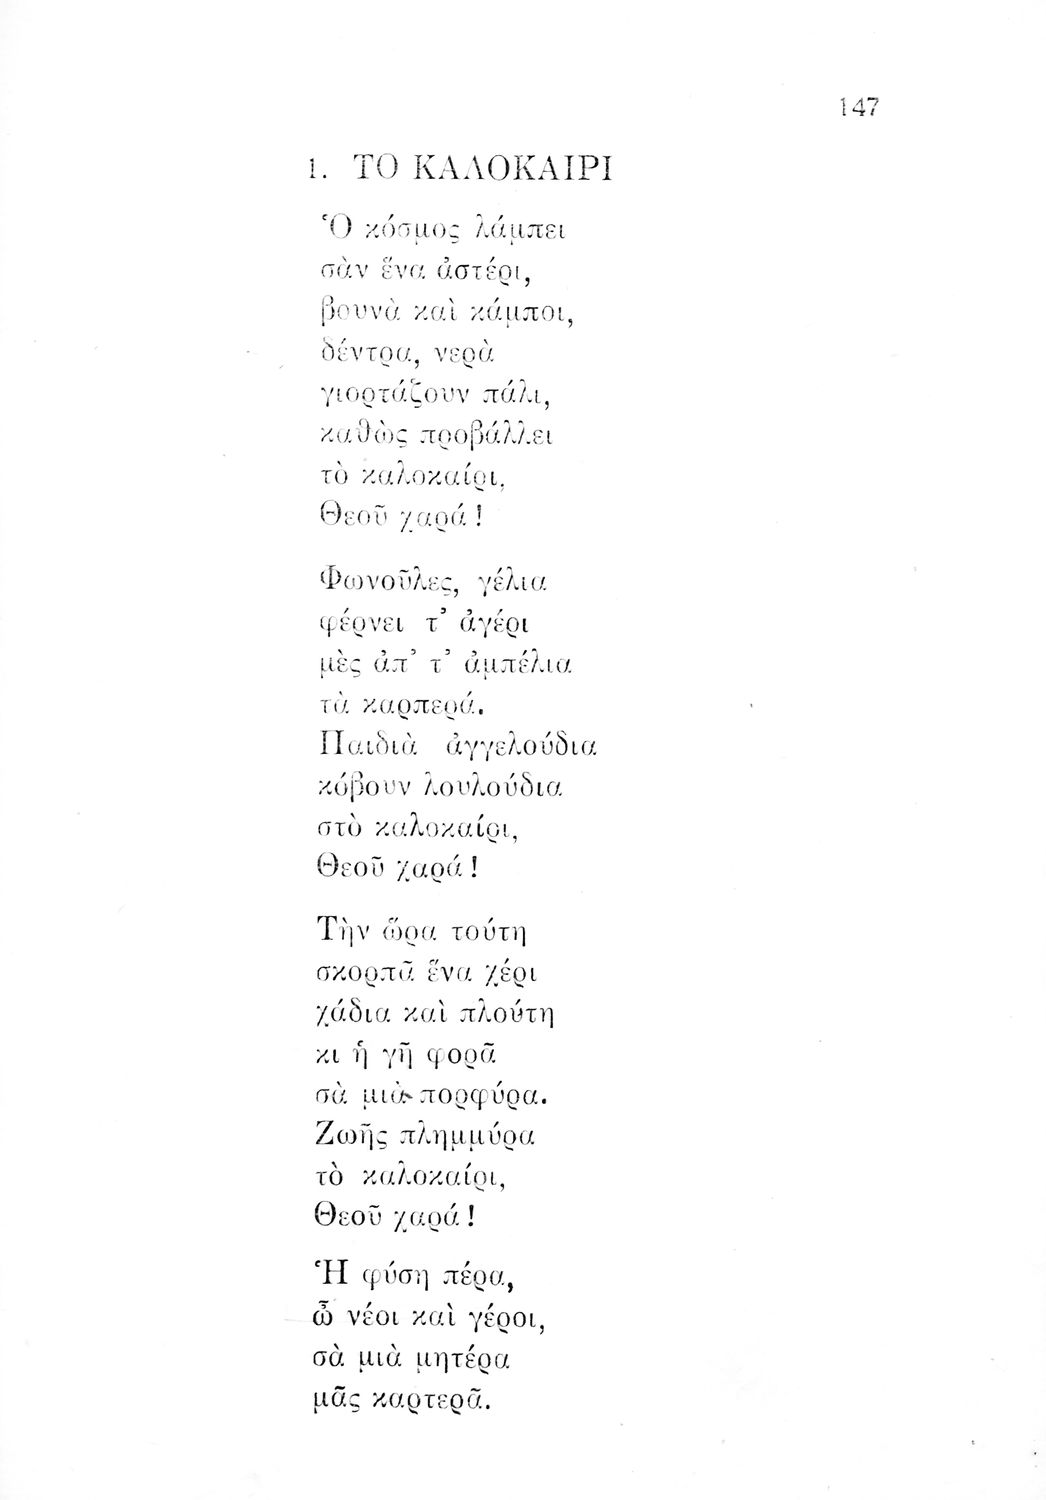 147
1. ΤΟ ΚΑΛΟΚΑΙΡΙ
Ὁ κόσμος λάμπει
σὰν ἕνα ἀστέρι,
βουνὰ καὶ κάμποι,
δέντρα, νερὰ
γιορτάζουν πάλι,
καθὼς προβάλλει
τὸ καλοκαίρι,
Θεοῦ χαρά!
Φωνοῦλες, γέλια
φέρνει τ’ ἀγέρι
μὲς ἀπ’ τ’ ἀμπέλια
τὰ καρπερά.
Παιδιὰ ἀγγελούδια
κόβουν λουλούδια
στὸ καλοκαίρι,
Θεοῦ χαρά!
Τὴν ὥρα τούτη
σκορπᾶ ἕνα χέρι
χάδια καὶ πλούτη
κι ἡ γῆ φορᾶ
σὰ μιὰ πορφύρα.
Ζωῆς πλημμύρα
τὸ καλοκαίρι,
Θεοῦ χαρά!
Ἡ φύση πέρα,
ὦ νέοι καὶ γέροι,
σὰ μιὰ μητέρα
μᾶς καρτερᾶ.